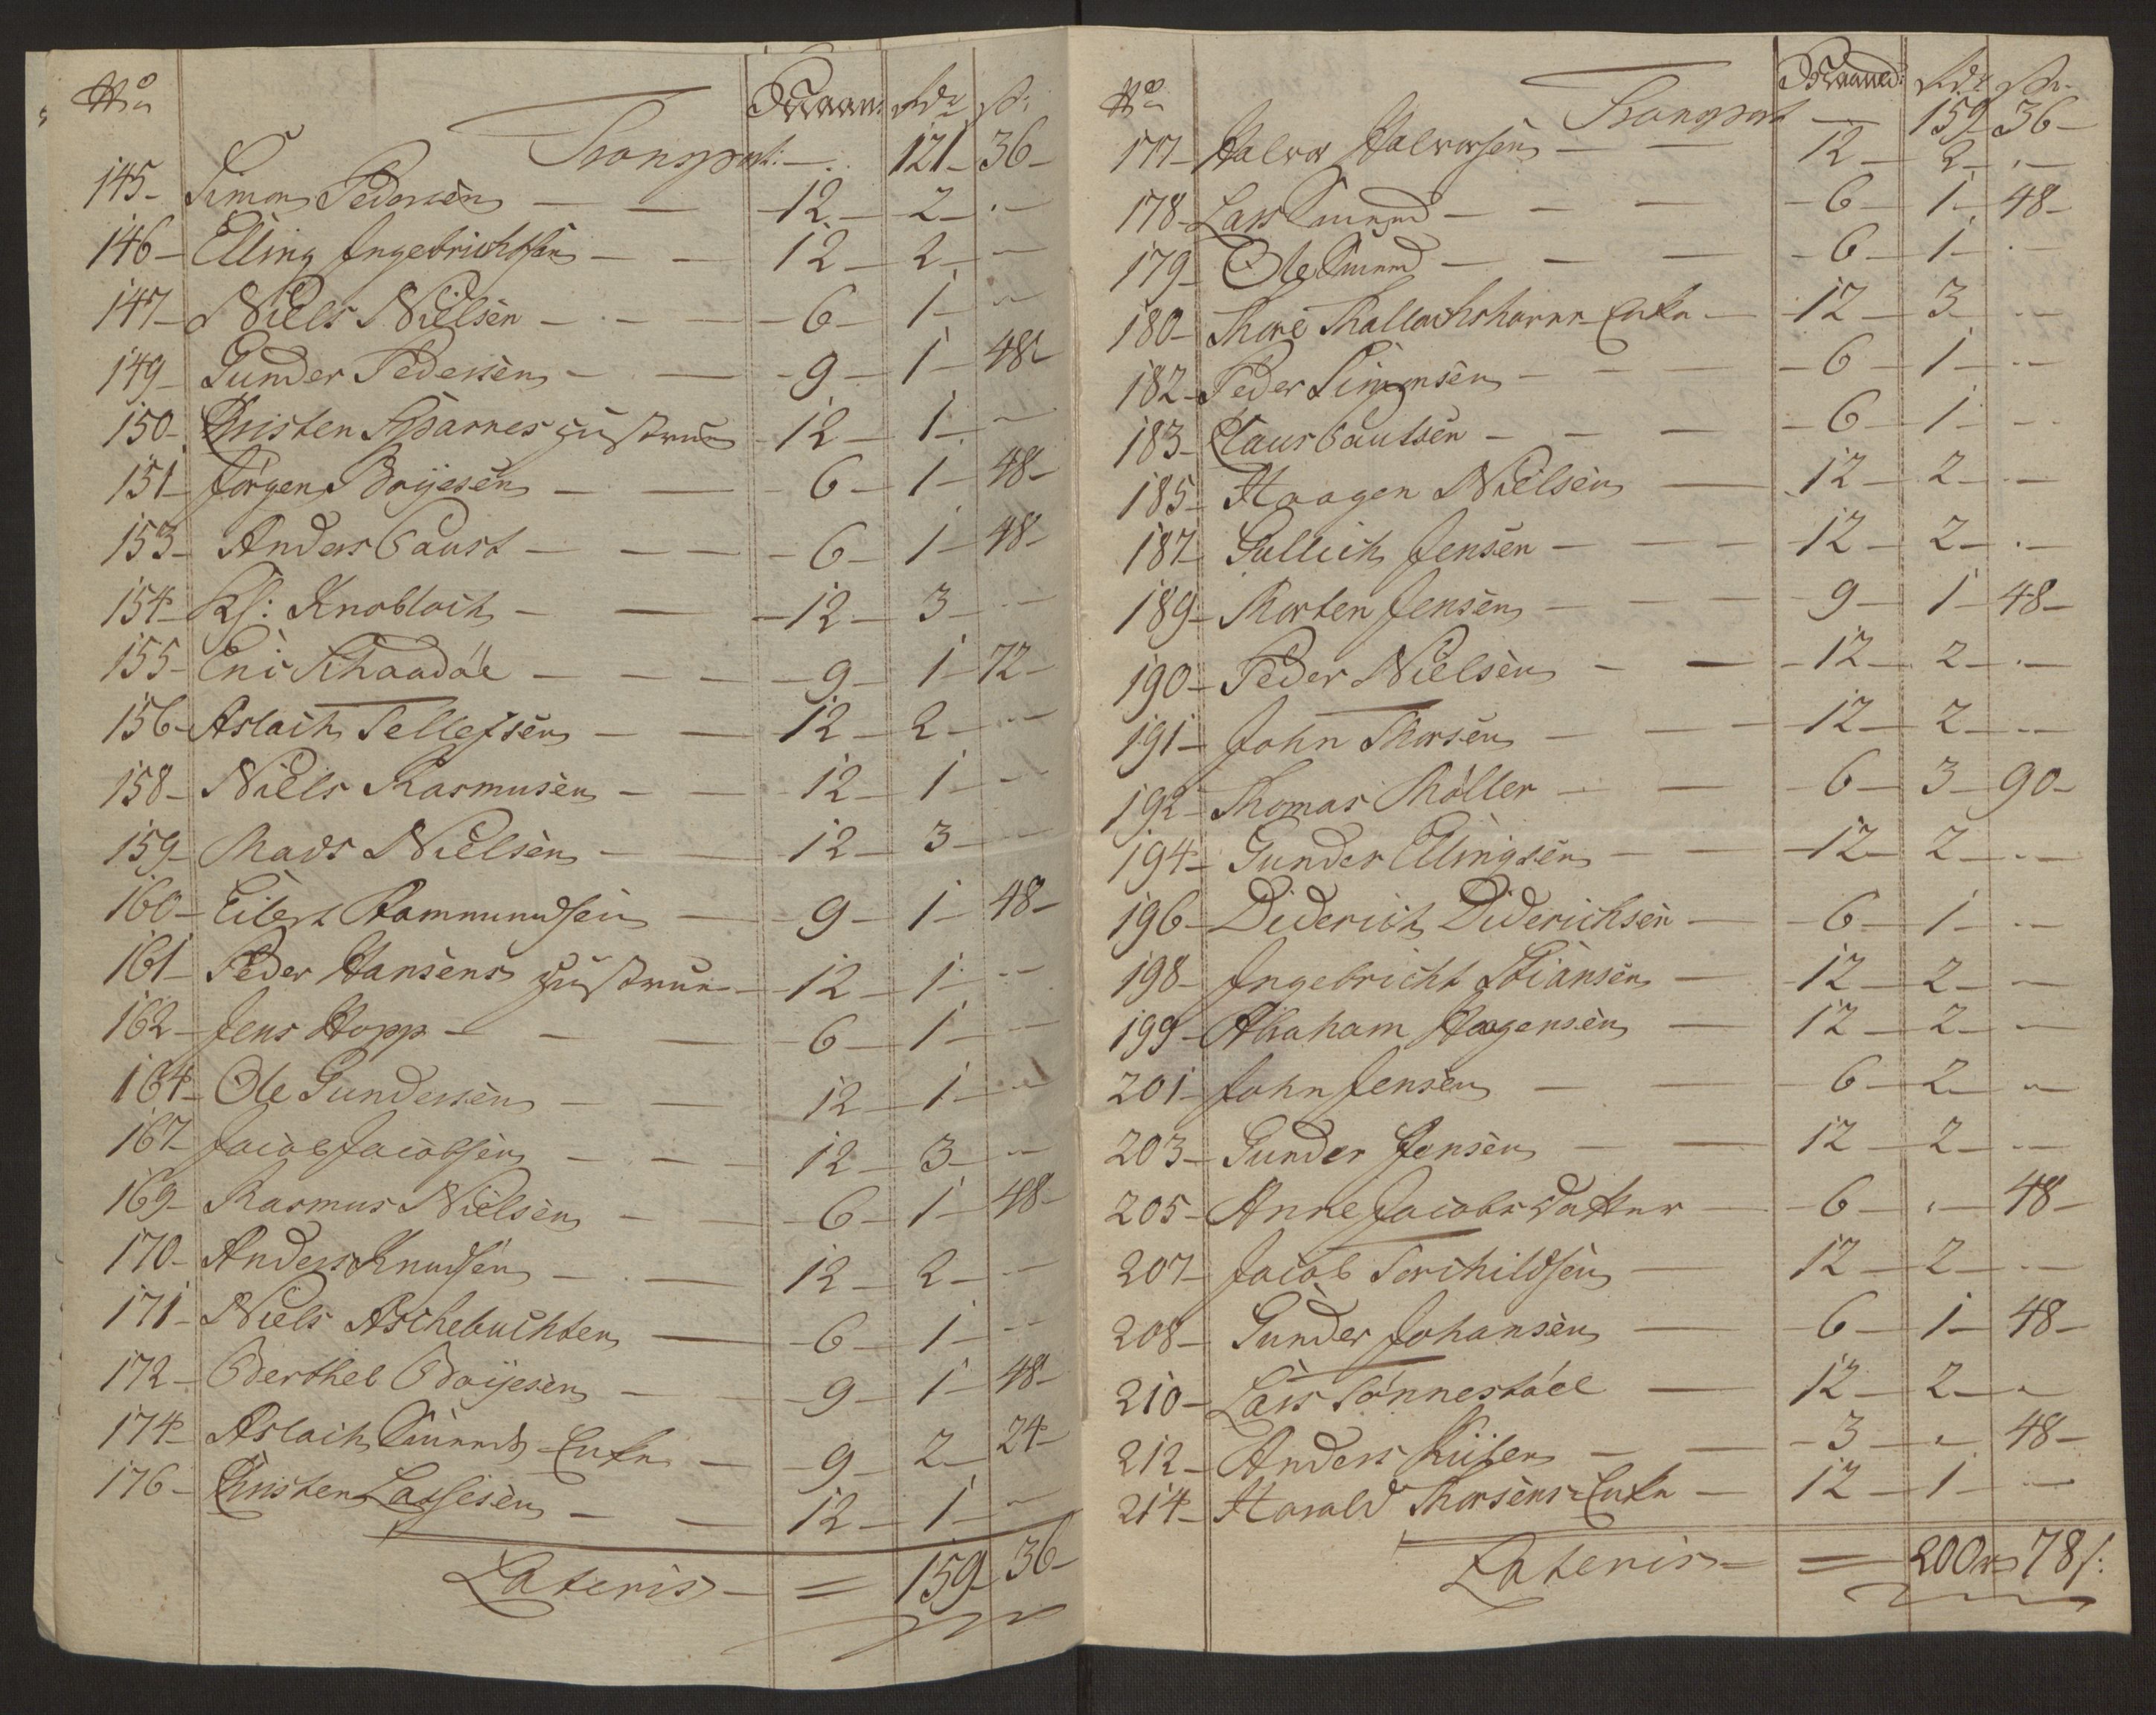 No Maan: Rdr s:
Transport: — 121 — 36 —
145 — Simon Pedersen — — 12 — 2 — " —
146 — Elling Ingebrichtsen — — 12 — 2 — " —
147 — Niels Nielsen — — — 6 — 1 — " —
149 — Gunder Pedersen — — 9 — 1 — 48 —
150 — Christen Hustrue — 12 — 1 — " —
151 — Jörgen Boÿesen — — 6 — 1 — 48 —
153 — Anders Paust — — — 6 — 1 — 48 —
154 — Knobloch — — 12 — 3 — " —
155 — Eni — — — 9 — 1 — 72 —
156 — Aslach Tellefsen — — 12 — 2 — " —
158 — Niels Rasmusen — — 12 — 1 — " —
159 — Mads Nielsen — — 12 — 3 — " —
160 — Eilert Aammundsen — 9 — 1 — 48 —
161 — Peder Hansens Hustrue — 12 — 1 — " —
162 — Jens Hopp — — — 6 — 1 — " —
164 — Ole Gundersen — — 12 — 1 — " —
167 — Jacob Jacobsen — — 12 — 3 — " —
169 — Rasmus Nielsen — — 6 — 1 — 48 —
170 — Anders Knudsen — — 12 — 2 — " —
171 — Niels Aschebuchten — 6 — 1 — " —
172 — Berthel Boÿesen — — 9 — 1 — 48 —
174 — Aslach Enke — 9 — 2 — 24 —
176 — Christen Lassesen — — 12 — 1 — " —
Lateris — = 159 — 36 —
No Maaned: Rdr s.
Transport — 159 — 36 —
177 — Halvor Halvorsen — — 12 — 2 — " —
178 — Lars Smed — — — 6 — 1 — 48 —
179 — Ole Smed — — — 6 — 1 — " —
180 — Thore Enke — 12 — 3 — " —
182 — Peder Simonsen — — — 6 — 1 — " —
183 — Claus Paulsen — — — 6 — 1 — " —
185 — Haagen Nielsen — 12 — 2 — " —
187 — Gullich Jensen — — — 12 — 2 — " —
189 — Morten Jensen — — — 9 — 1 — 48 —
190 — Peder Nielsen — — 12 — 2 — " —
191 — John Thorsen — — — 12 — 2 — " —
192 — Thomas Möller — — 6 — 3 — 90 —
194 — Gunder Ellingsen — — 12 — 2 — " —
196 — Diderich Diderichsen — 6 — 1 — " —
198 — Ingebricht Stiansen — 12 — 2 — " —
199 — Abraham Haagensen — 12 — 2 — " —
201 — John Jensen — — 6 — 2 — " —
203 — Gunder Jensen — — 12 — 2 — " —
205 — Anne Jacobsdatter — 6 — " — 48 —
207 — Jacob Torchildsen — 12 — 2 — " —
208 — Gunder Johansen — 6 — 1 — 48 —
210 — Lars Tönnestöel — 12 — 2 — " —
212 — Anders — — 3 — " — 48 —
214 — Harald Thorsens Enke — 12 — 1 — " —
Lateris — = 200 rd 78 s: